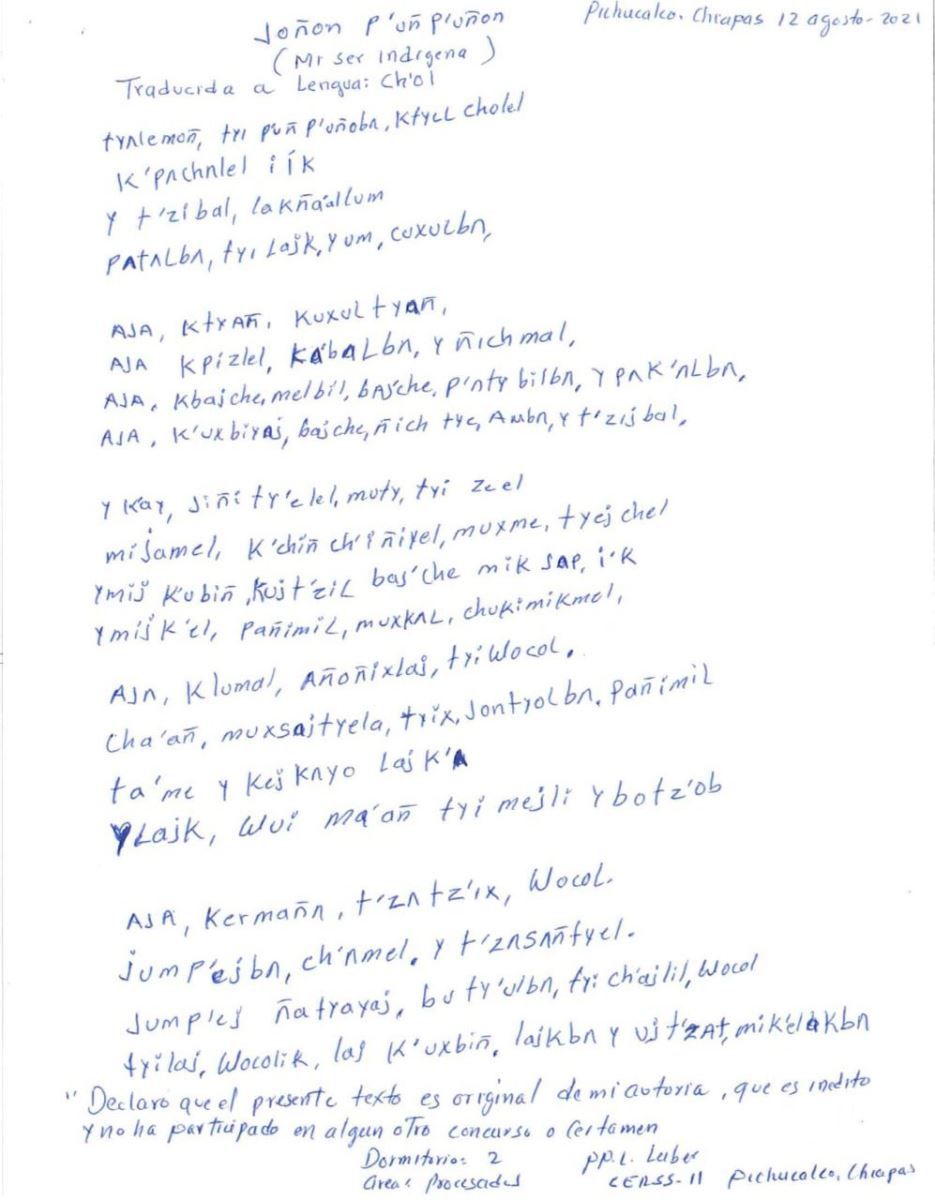 Pichucalco. Chiapas 12 agosto-2021
Joñon P'uñ P'uñon
(Mi ser indigena)
Traducida a Lengua: Ch'ol
tyʌlemoñ, tyi pʼuñ p'uñobʌ, Ktycl cholel
K'pʌchʌlel i ík
Y t'zibal, lakña'allum
PAtʌLbʌ, tyi Lajk, Yum, cuxuLbʌ,
AJA, KtyAñ, Kuxul tyañ,
AJA Kpizlel, KábaLbʌ, Y ñich mal,
AJA, Kbajche, melbil, bAs'che, P'ʌty bilbʌ, Y pʌK'ʌLbʌ,
AJA, K'uxbiyaj, bajche, ñich tye, Awbʌ, Y t'zijbal,
Y Kay, Jiñi ty'elel, muty, tyi zeel
mijamel, K'chiñ ch'iñiyel, muxme, tyej chel
Ymij K'ubiñ, Kujt'ziL bas'che mik sap, i'K
Ymij K'el, PañimiL, muxkʌL, chukimikmel,
AJʌ, Klumal, Añoñixlaj, tyi Wocol.
Cha'añ, muxsajtyela, tyix, JontyoLbʌ, Pañimil
ta'me Y Kejkʌyo Lajk'A
YLajk, Wui ma'añ tyi mejli Y botz'ob
AJA, Kermañʌ, t'zʌtz'ix, Wocol.
jump'ejbʌ, ch'ʌmel, Y t'zʌsʌñtyel.
Jump'ej ñatyayaj, bu ty'ulbʌ, tyi ch'ajlil, Wocol
tyilaj, Wocolik, laj K'uxbiñ, lajkbʌ y ujt'zAt, mik'elakbʌ
"Declaro que el presente texto es original de mi autoria, que es inedito
y no ha participado en algun otro concurso o Certamen
Dormitorio: 2 PP.L. Luber
area: Procesados CERSS-11 Pichucalco, Chiapas